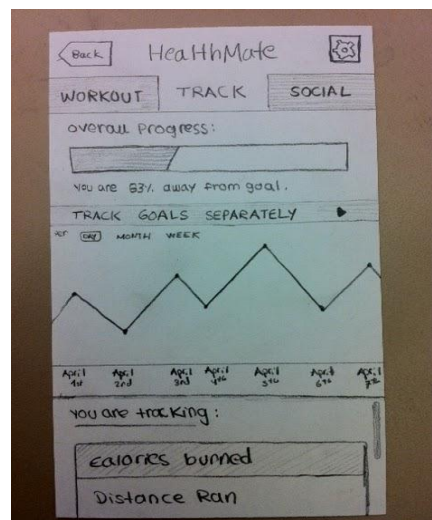 Back HealthMate
WORKOUT TRACK SOCIAL
overall progress:
you are 63% away from goal.
TRACK GOALS SEPARATELY
DAY MONTH WEEK
April 1st April 2nd April 3rd April 4th April 5th April 6th April 7th
you are tracking:
calories burned
Distance Ran